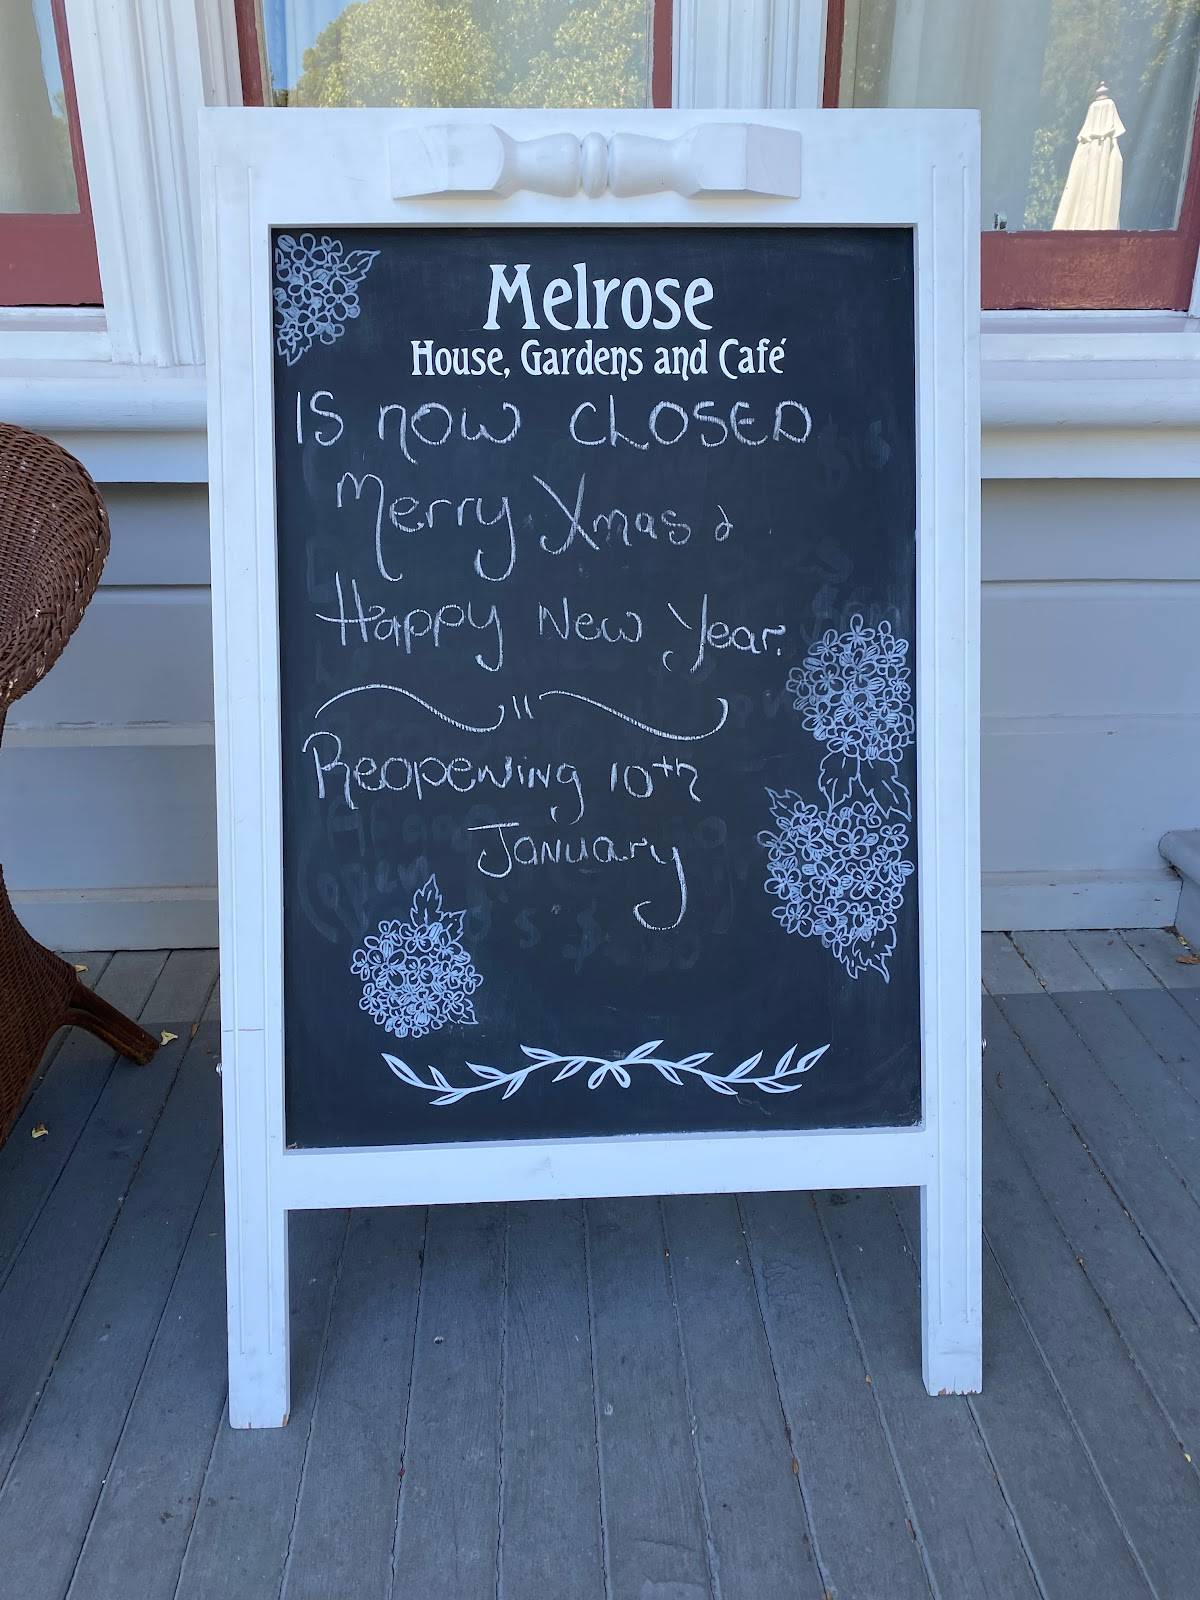 Melrose
House, Gardens and Café
IS NOW CLOSED
Merry Xmas &
Happy New Year.
Reopening 10th
January